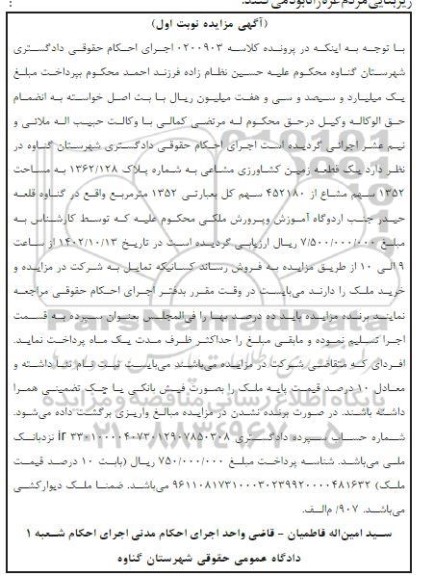 (آگهی مزایده نوبت اول)
با توجه به اینکه در پرونده کلاسه ۰۲۰۰۹۰۳ اجرای احکام حقوقی دادگستری
شهرستان گناوه محکوم علیه حسین نظام زاده فرزند احمد محکوم بپرداخت مبلغ
یک میلیارد و سیصد و سی و هفت میلیون ریال با بت اصل خواسته به انضمام
حق الوکاله وکیل درحق محکوم له مرتضی کمالی با وکالت حبیب اله ملائی و
نیم عشر اجرائی گردیده است اجرای احکام حقوقی دادگستری شهرستان گناوه در
نظر دارد یک قطعه زمین کشاورزی مشاعی به شماره پلاک ۱۳۶۲/۱۲۸ به مساحت
۱۳۵۲ سهم مشاع از ۴۵۲۱۸۰ سهم کل بعبارتی ۱۳۵۲ مترمربع واقع در گناوه قلعه
حیدر جنب اردوگاه آموزش وپرورش ملکی محکوم علیه که توسط کارشناس به
مبلغ ۷/۵۰۰/۰۰۰/۰۰۰ ریال ارزیابی گردیده است در تاریخ ۱۴۰۲/۱۰/۱۳ از ساعت
۹ الی ۱۰ از طریق مزایده به فروش رساند کسانیکه تمایل به شرکت در مزایده و
خرید ملک را دارند می‌بایست در وقت مقرر بدفتر اجرای احکام حقوقی مراجعه
نمایند برنده مزایده باید ده درصد بها را فی‌المجلس بعنوان سپرده به قسمت
اجرا تسلیم نموده و مابقی مبلغ را حداکثر ظرف مدت یک ماه پرداخت نماید.
افرادی که متقاضی شرکت در مزایده می‌باشند می‌بایست ثبت نام ثنا داشته و
معادل ۱۰ درصد قیمت پایه ملک را بصورت فیش بانکی یا چک تضمینی همرا
داشته باشند. در صورت برنده نشدن در مزایده مبالغ واریزی برگشت داده می‌شود.
شماره حساب سپرده دادگستری ir ۳۳۰۱۰۰۰۰۴۰۷۳۰۱۲۹۰۷۸۵۰۳۰۸ نزدبانک
ملی می‌باشد. شناسه پرداخت مبلغ ۷۵۰/۰۰۰/۰۰۰ ریال (بابت ۱۰ درصد قیمت
ملک) ۹۶۱۱۰۸۱۷۳۱۰۰۰۳۰۲۳۹۹۲۰۰۰۰۴۸۱۶۳۲ می‌باشد. ضمنا ملک دیوارکشی
می‌باشد. ۹۰۷/ م‌الف.
سید امین‌اله فاطمیان - قاضی واحد اجرای احکام مدنی اجرای احکام شعبه ۱
دادگاه عمومی حقوقی شهرستان گناوه